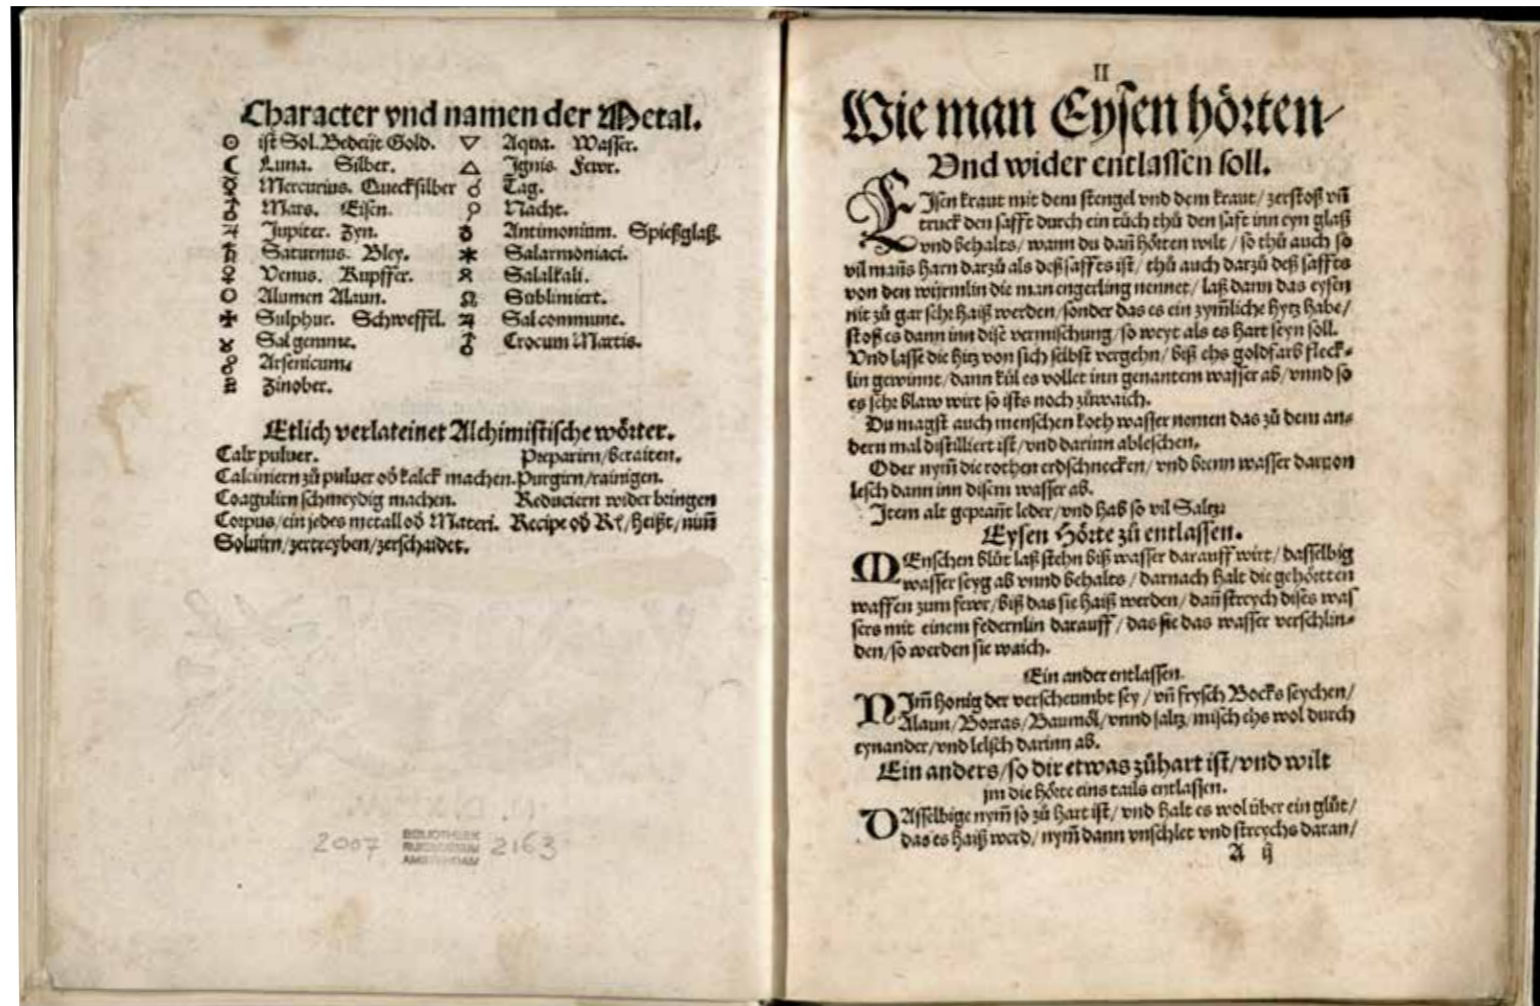 Character vnd namen der Metal.
☉ ist Sol. Bedeüt Gold. ▽ Aqua. Wasser.
☾ Luna. Silber. △ Ignis. Fewr.
☿ Mercurius. Quecksilber Tag.
Mars. Eisen. Nacht.
♃ Jupiter. Zyn. Antimonium. Spießglaß.
♄ Saturnus. Bley. Salarmoniaci.
♀ Venus. Kupffer. Salalkali.
Alumen Alaun. Sublimiert.
Sulphur. Schweffel. Sal commune.
Sal gemme. Crocum Martis.
Arsenicum.
Zinober.
Etlich verlateinet Alchimistische wörter.
Calx puluer. Preparirn/beraiten.
Calciniern zů puluer oď kalck machen. Purgirn/rainigen.
Coagulirn schmeydig machen. Reduciern wider bringen
Corpus/ein jedes metall oď Materi. Recipe oď Rć/heißt/nim̃
Soluirn/zertreyben/zerschaidet.
2007 BIBLIOTHEEK 2163
RIJKSMUSEUM
AMSTERDAM
II
Wie man Eysen hörten/
Vnd wider entlassen soll.
EJsen kraut mit dem stengel vnd dem kraut/zerstoß vñ
truck den safft durch ein tůch thů den saft inn eyn glaß
vnd behalts/wann du dañ hörten wilt/so thů auch so
vil mañs harn darzů als deß saffts ist/thů auch darzů deß saffts
von den würmlin die man engerling nennet/laß dann das eysen
nit zů gar sehr haiß werden/sonder das es ein zym̃liche hytz habe/
stoß es dann inn dise vermischung/so weyt als es hart seyn soll.
Vnd lasse die hitz von sich selbst vergehn/biß ehs goldfarb fleck-
lin gewinnt/dann kül es vollet inn genantem wasser ab/vnnd so
es sehr blaw wirt so ists noch zůwaich.
Du magst auch menschen koth wasser nemen das zů dem an-
dern mal distilliert ist/vnd darinn ableschen.
Oder nym̃ die rothen erdschnecken/vnd brenn wasser daruon
lesch dann inn disem wasser ab.
Item alt geprañt leder/vnd hab so vil Saltz:
Eysen Hörte zů entlassen.
MEnschen blůt laß stehn biß wasser darauff wirt/dasselbig
wasser seyg ab vnnd behalts/darnach halt die gehörtten
waffen zum fewr/biß das sie haiß werden/dañ streych dises was
sers mit einem federnlin darauff/das sie das wasser verschlin-
den/so werden sie waich.
Ein ander entlassen.
NIm̃ honig der verscheumbt sey/vñ frysch Bocks seychen/
Alaun/Borras/Baumöl/vnnd saltz/misch ehs wol durch
eynander/vnd lelsch darinn ab.
Ein anders/so dir etwas zůhart ist/vnd wilt
jm die hörte eins tails entlassen.
DAsselbige nym̃ so zů hart ist/vnd halt es wol über ein glůt/
das es haiß werd/nym̃ dann vnschlet vnd streychs daran/
A ij